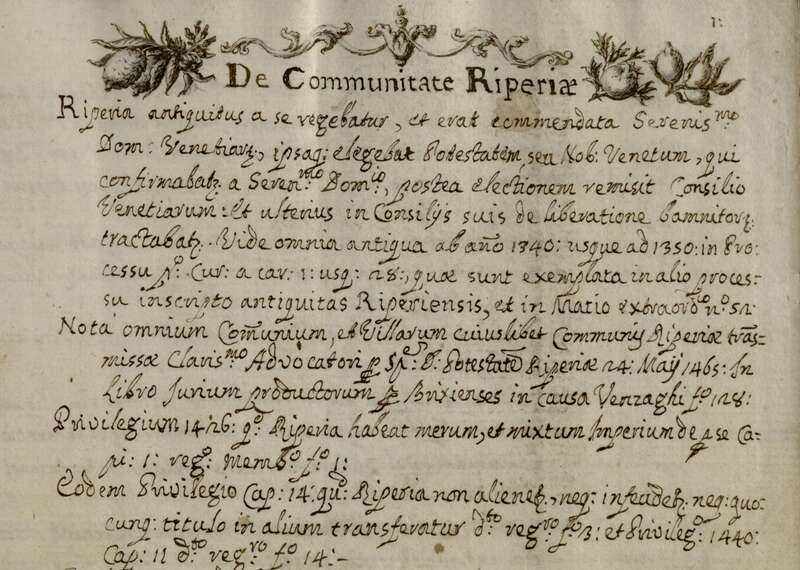 1:
De Communitate Riperiæ
Riperia antiquitus a se regebatur, et erat commendata Serenis.mo
Dom: Venetiarꝝ, ipsaq; elegebat Potestatem, seu Nob: Venetum, qui
confirmabatꝫ a Seren.mo Domio, postea electionem remisit Consilio
Venetiarum: Et ulterius in Consilijs suis de liberatione bamnitorꝝ
tractabatꝫ. Vide omnia antiqua ab año 1340: usque ad 1350: in Pro:
cessu po. Cur: a car: 1: usq: 28:, quæ sunt exemplata in alio proces-
su inscripto antiquitas Riperiensis, et in Matio extraord.o no.
Nota omnium Comũnium, et Villarum cuiuslibet Communis Riperiæ trãs-
missæ Claris.mo Advocatori ꝑ Sp. D. Potestatẽ Riperiæ 24: Maij 1465: In
Libro Jurium productorum ꝑ Brixienses in causa Venzaghi fo. 128:
Privilegium 1426: qo. Riperia habeat merum, et mixtum Imperium de ꝑ se Ca-
pi: 1: rego. Memb.o fo. 1:
Eodem Privilegio Cap: 14: qd: Riperia non alienetꝫ, neq: infeudetꝫ, neq: quo:
cunq: titulo in alium transferatur dto. reg.ro fo. 3: et Privileg.o 1440:
Cap: 11 dto. reg.ro fo. 14:-